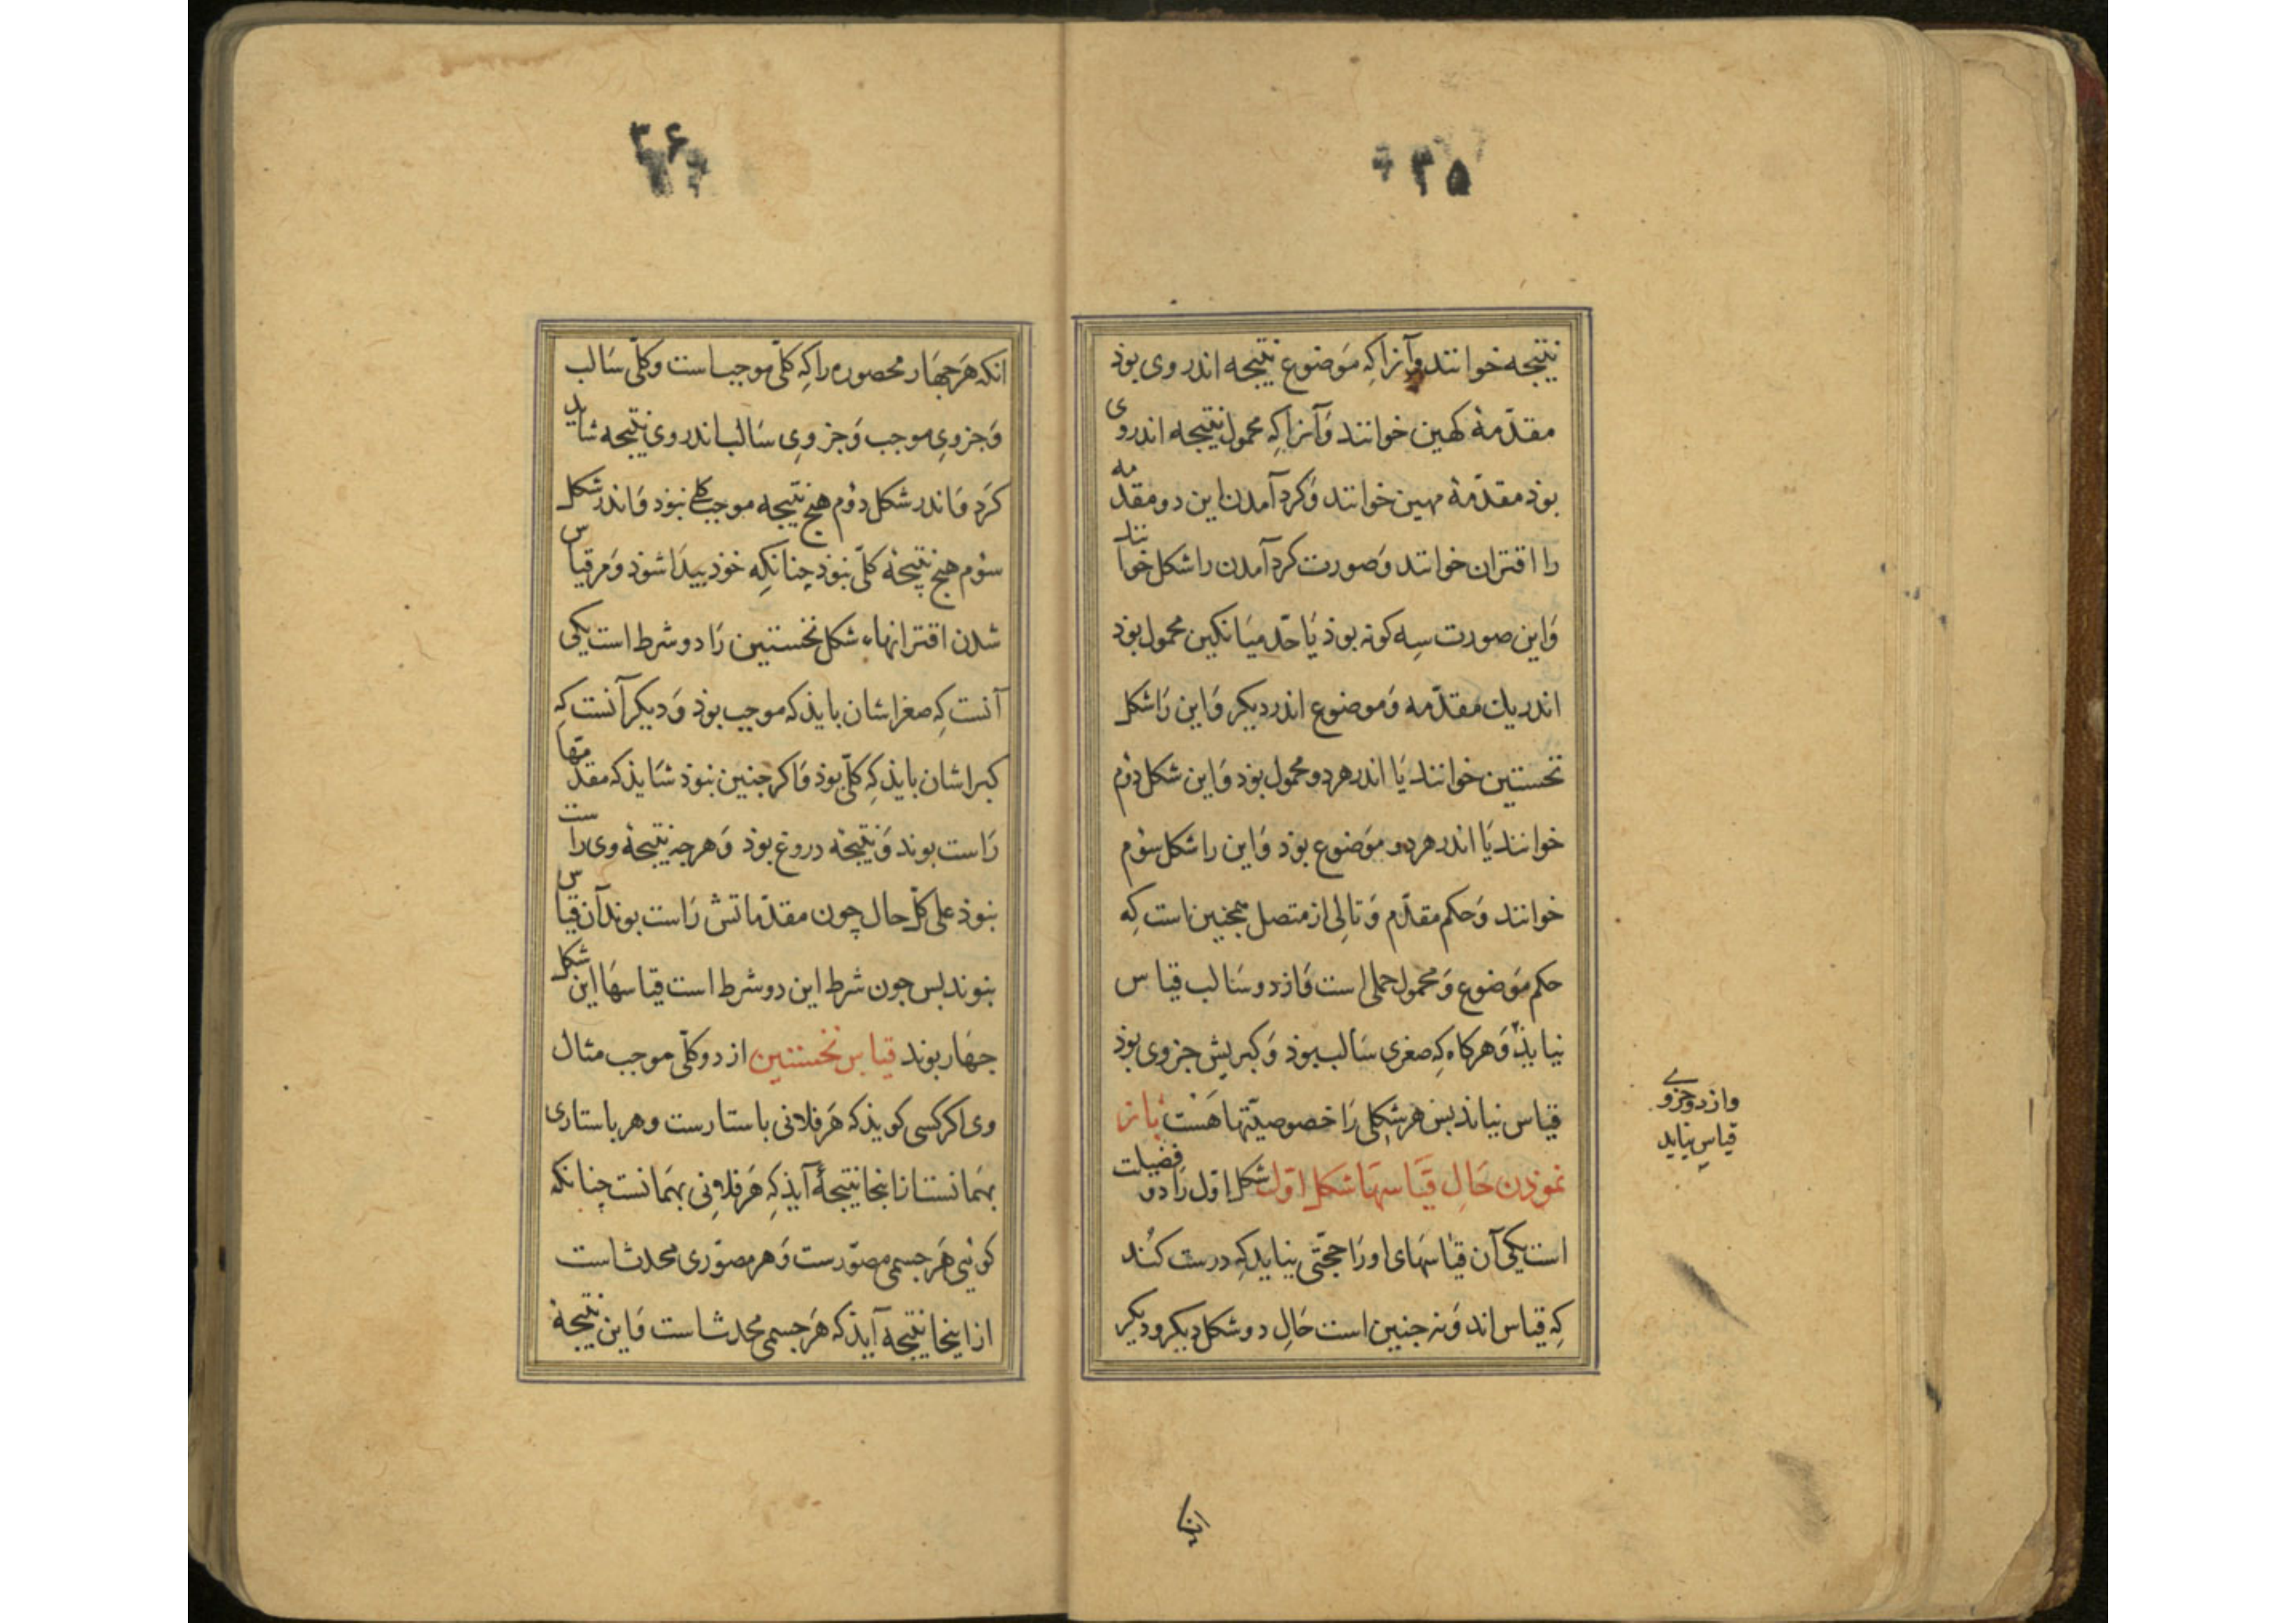 ۳۵
نتیجه خوانند وآنرا کِه مَوضوع نتیجه اندر وی بوذ
مقدّمهٔ کهین خوانند وَآنرا کِه محمول نتیجه اندروی
بوذ مقدّمهٔ مهین خوانند وَکرد آمدن این دو مقدمه
را اقتران خوانند وَصورت کرد آمدن را شکل خوانند
وَاین صورت سِه کونه بوذ یَا حدّ میَانکین محمول بوذ
اندر یك مقدّمه وَموضوع اندر دیکر وَاین رَا شکل
نخستین خوانند یَا اندر هر دو محمول بوذ وَاین شکل دوٚم
خوانند یَا اندر هر دو مَوضوع بوذ وَاین را شکل سوٚم
خوانند وَحکم مقدّم وَتالِی از متصل همجنین است کِه
حکم مَوضوع وَمحمول حملی است وَاز دو سَالب قیاس
نیایذ وَهرکاه کِه صغری سَالب بوذ وَکبریش جزوی بوذ
قیاس نیاید بس هر شکلی رَا خصوصیّتها هَسْت باز
نموذن حَالِ قیَاسهَا شکل اوّل شکل اوّل رَا دو فضیلت
است یکی آن قیٰاسهَای او رَا حجّتی نباید کِه درست کُند
کِه قیاس اند وَنه جنین است حَالِ دو شکل دیکر ودیکر
وازدو جزوی
قیاس نیاید
۳۶
انکه هَر جهَار محصوره را کِه کلّی موجب است وکلّی سَالب
وَجزویِ موجب وَجزویِ سَالب اندر وی نتیجه شاید
کَرد وَاندر شکل دوٚم هیج نتیجه موجب کلی نبوذ وَاندر شکل
سوٚم هیج نتیجهٔ کلّی نبوذ چنانکِه خوذ پیدَا شوذ وَمر قیاس
شدن اقترانهاء شکل نخستین رَا دو شرط است یکی
آنست کِه صغراشان بایذ که موجب بوذ وَدیکر آنست کِه
کبراشان بایذ کِه کلّی بوذ وَاکر جنین نبوذ شَایذ که مقدّمتها
رَاست بوند وَنتیجهٔ دروغ بوذ وَهرجه نتیجهٔ وی راست
نبوذ علی کلّ حال چون مقدّماتش رَاست بوند آن قیاس
نبوند بس جون شرط این دو شرط است قیاسهَا این شکل
جهَار بوند قیاس نخستین از دو کلّی موجب مثال
وی اکر کسی کویذ که هَر فلانی باستارست وهر باستاری
بهَمانست از اینجا نتیجهٔ آیذ کِه هَر فلاوِنی بهَمانست چنانکه
کوئی هَر جسمی مصوّرست وَهر مصوّری محدث است
از اینجا نتیجه آیذ که هَر جسمی محدث است وَاین نتیجهٔ